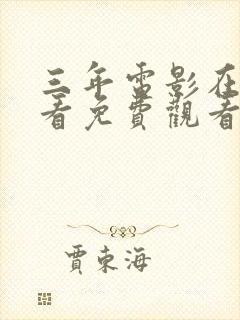 三年雷影在
看免費觀看
賈東海